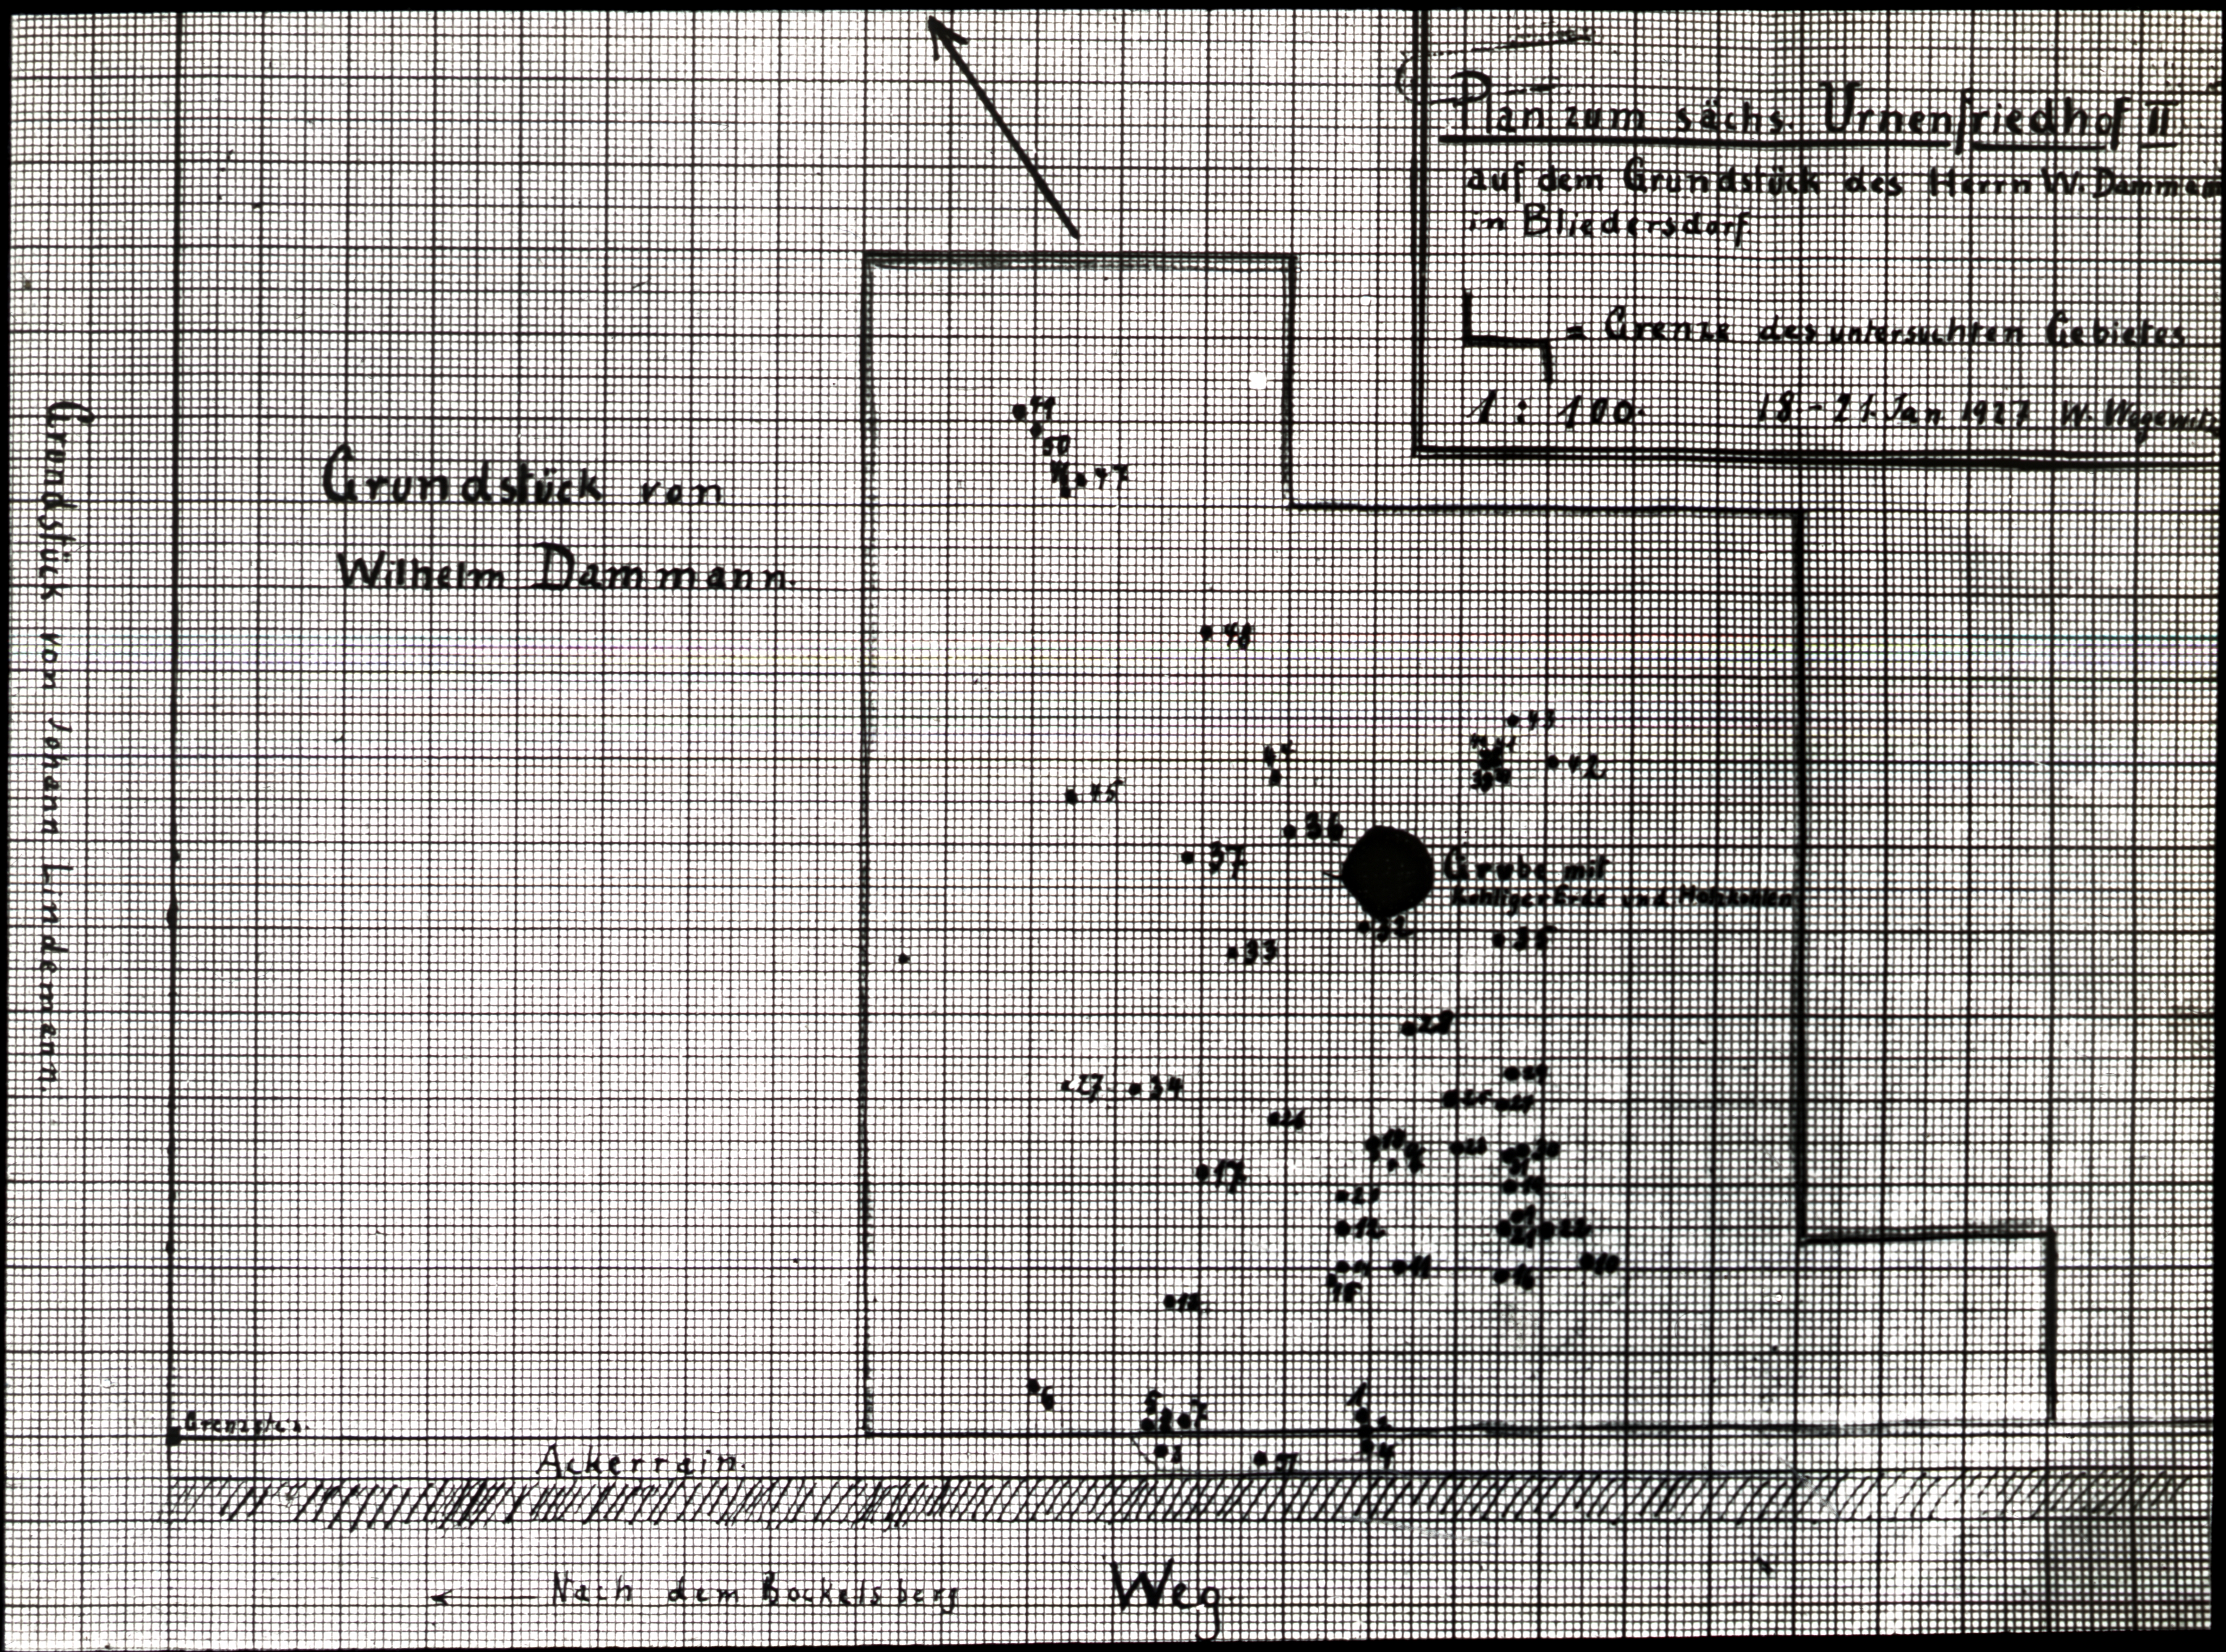 Plan zum sächs. Urnenfriedhof II.
auf dem Grundstück des Herrn W. Dammann
in Bliedersdorf
= Grenze des untersuchten Gebietes
1 : 100. 18-21. Jan 1927 W. Wegewitz
Grundstück von
Wilhelm Dammann.
Grundstück von Johann Lindemann.
50
47
48
43
42
45
36
37
Grube mit
kohliger Erde und Holzkohlen
32
35
33
28
27
34
26
17
12
11
10
16
15
6
5
7
1
3
4
Grenzstein.
Ackerrain.
← Nach dem Bockelsberg
Weg.